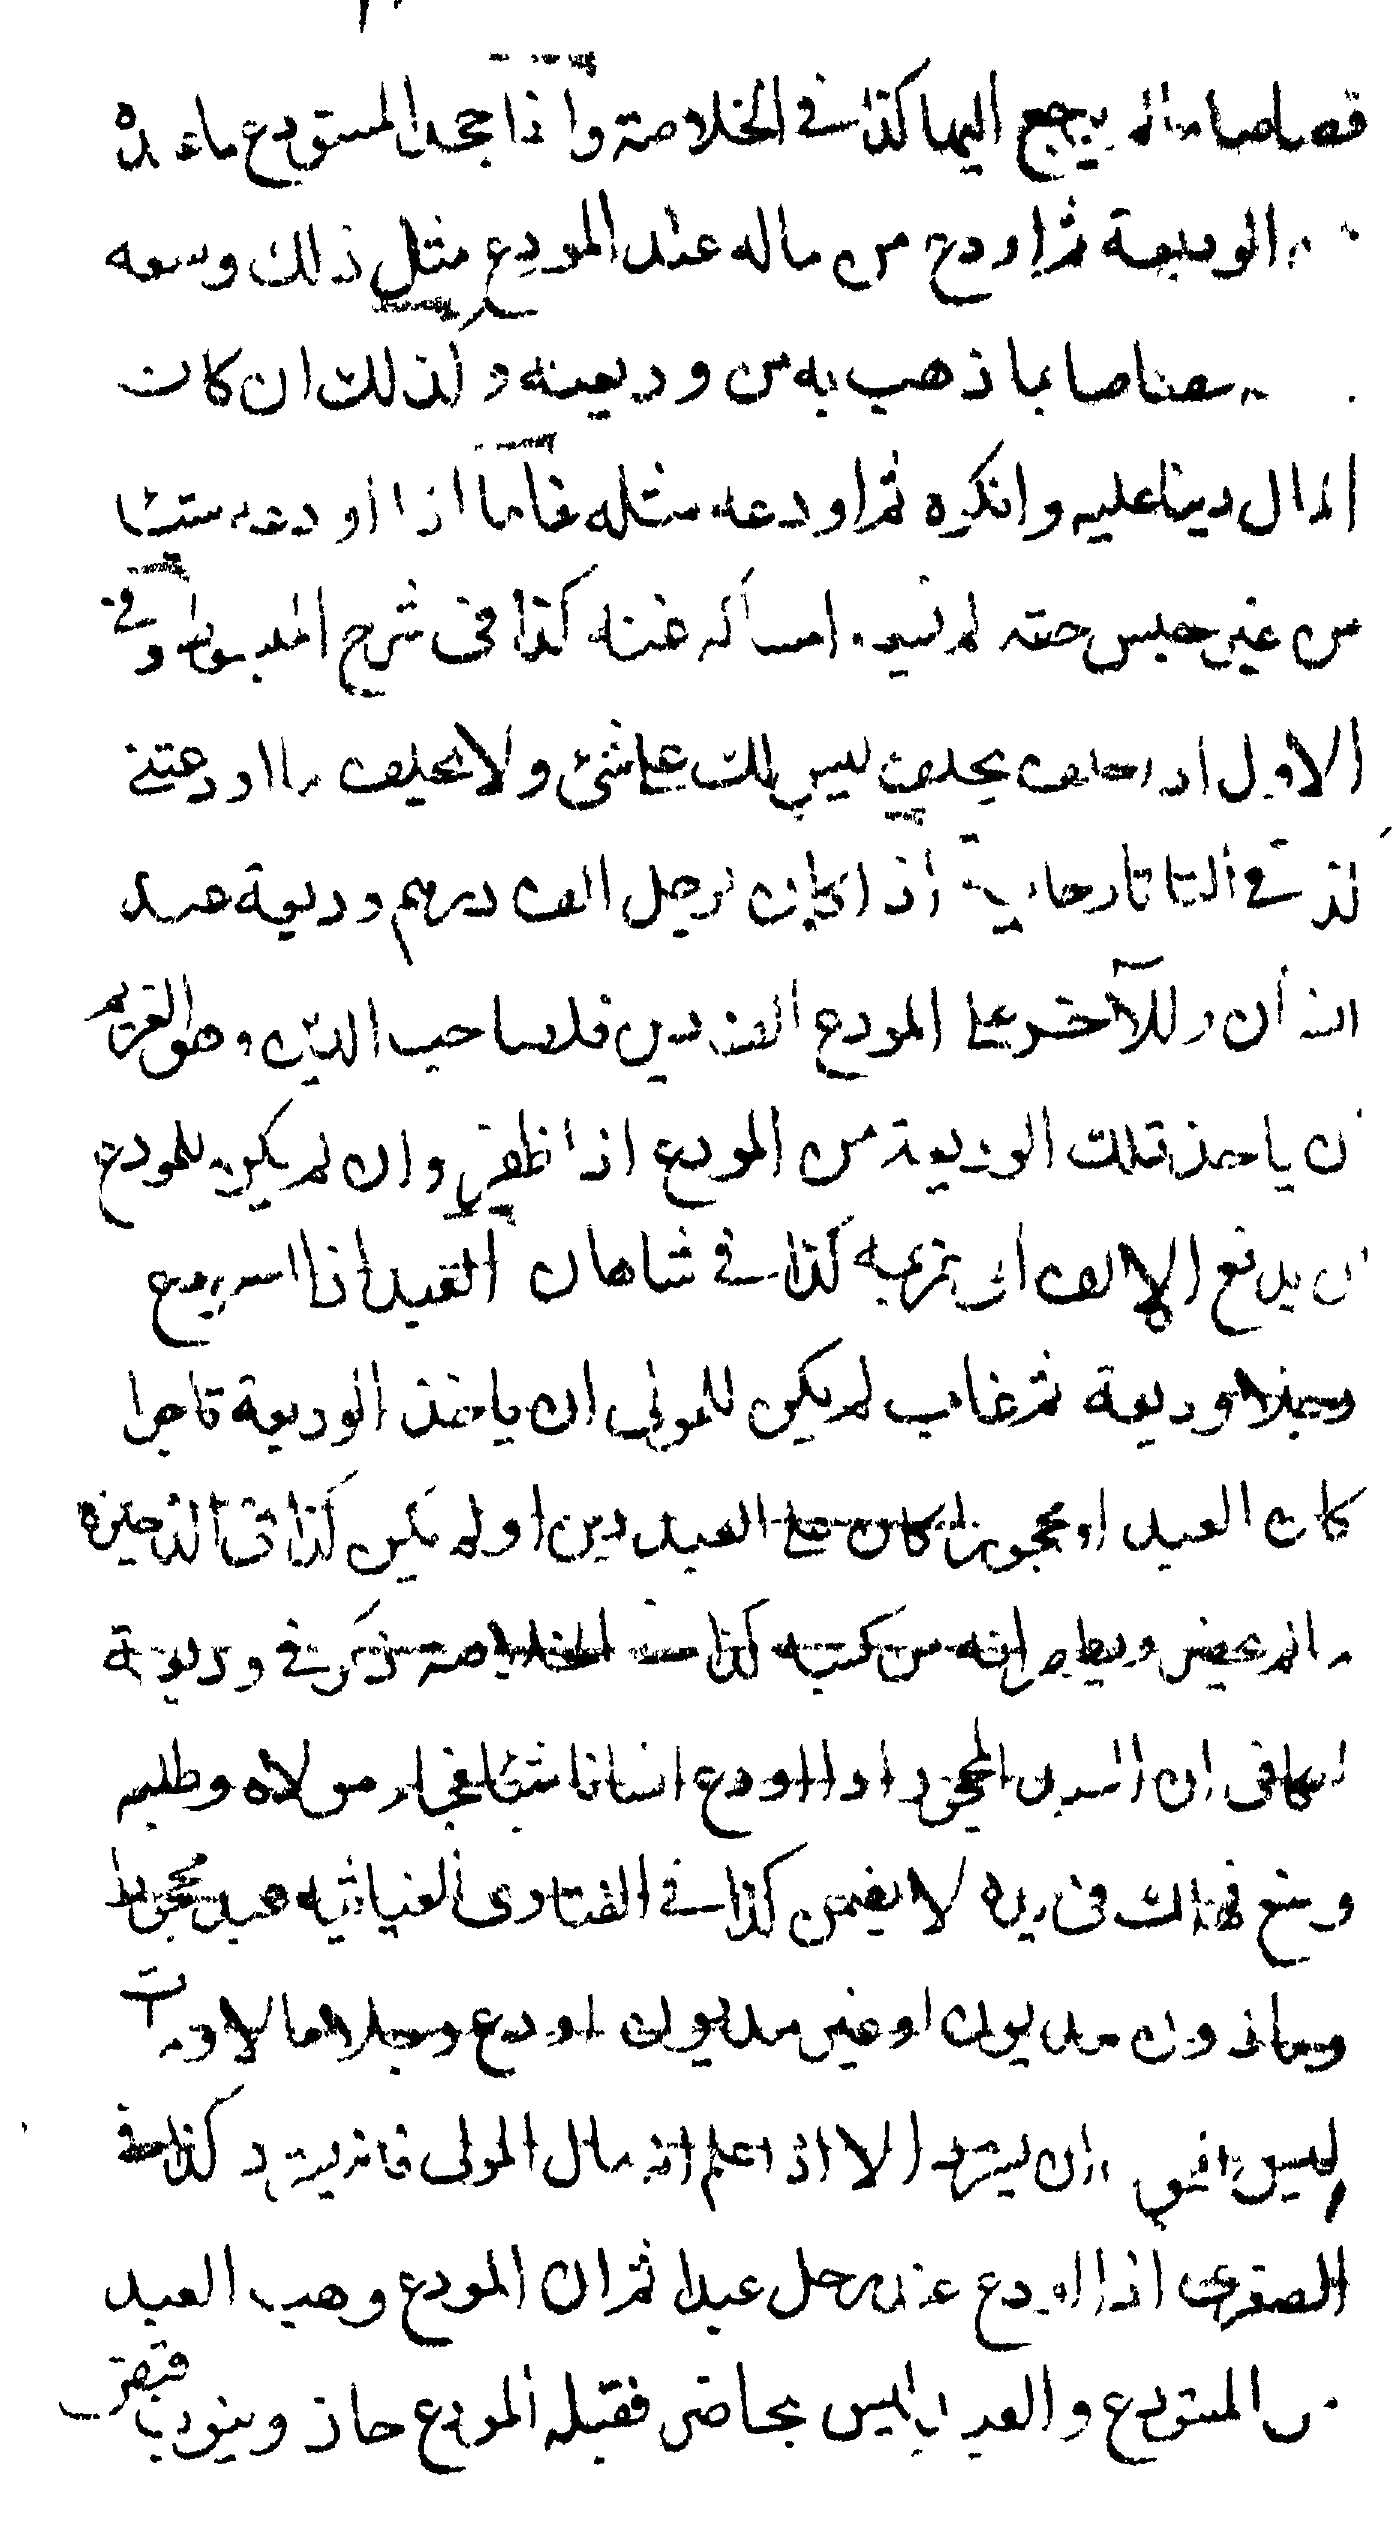 قصاصا مالم يرجع اليها كذا في الخلاصة واذا جحد المستودع ما عنده
الوديعة ثم اودع من ماله عند المودع مثل ذلك وسعه
قصاصا بما ذهب به من وديعته وكذلك ان كان
المال دينا عليه وانكره ثم اودعه مثله فاما اذا اودعه شيئا
من غير جنس حقه لم يسعه امساكه عنه كذا في شرح المبسوط وفي
الاول اذا حلف يحلف ليس لك على شئ ولا يحلف ما اودعتني
كذا في التاتارخانية اذا كان لرجل الف درهم وديعة عند
انسان وللآخر على المودع الف دين فلصاحب الدين وهو الغريم
ان ياخذ تلك الوديعة من المودع اذا ظفر وان لم يكن للمودع
ان يدفع الالف الى غريمه كذا في شاهان العبد اذا اودع
رجلا وديعة ثم غاب لم يكن للمولى ان ياخذ الوديعة تاجرا
كان العبد او محجورا كان على العبد دين او لم يكن كذا في الذخيرة
انه من كتبه كذا في الخلاصة ذكر في وديعة
الكافي ان العبد المحجور اذا اودع انسانا شيئا فجاء مولاه وطلبه
ومنع فهلك في يده لا يضمن كذا في الفتاوى الغياثيه عبد محجور
وماذون مديون او غير مديون اودع رجلا مالا ومات
ليس ان يسترد الا اذا علم انه مال المولى كذا في
الصغرى اذا اودع عند رجل عبدا ثم ان المودع وهب العبد
من المستودع والعبد ليس بحاضر فقبله المودع جاز وينوب قبض